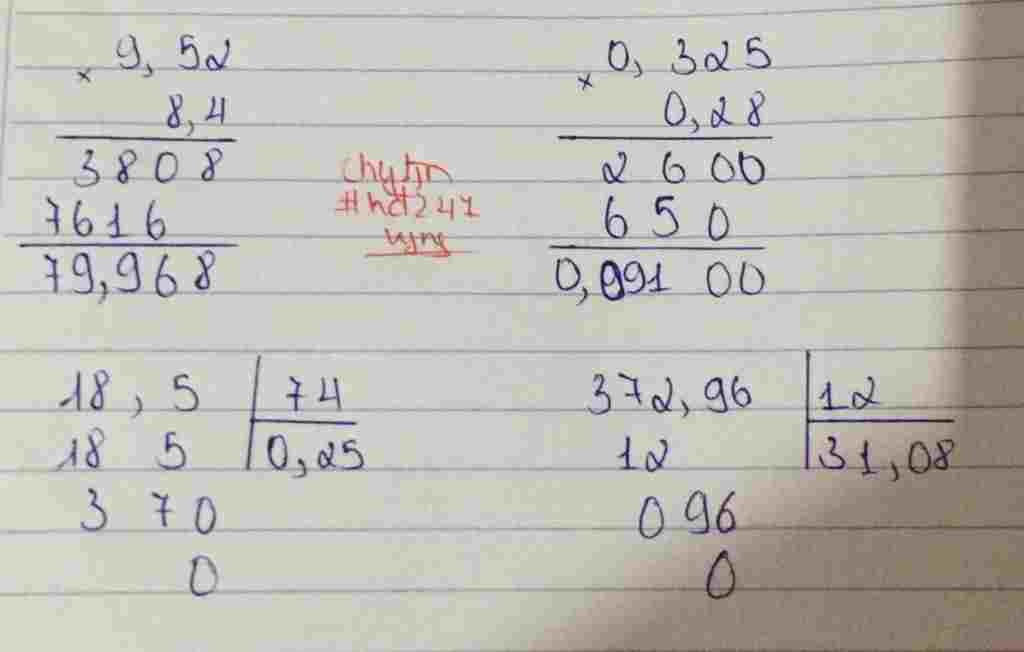 × 9,52
8,4
3808
7616
79,968
× 0,325
0,28
2600
650
0,09100
#hd247
18,5 | 74
18 5 | 0,25
3 70
0
372,96 | 12
12 | 31,08
096
0